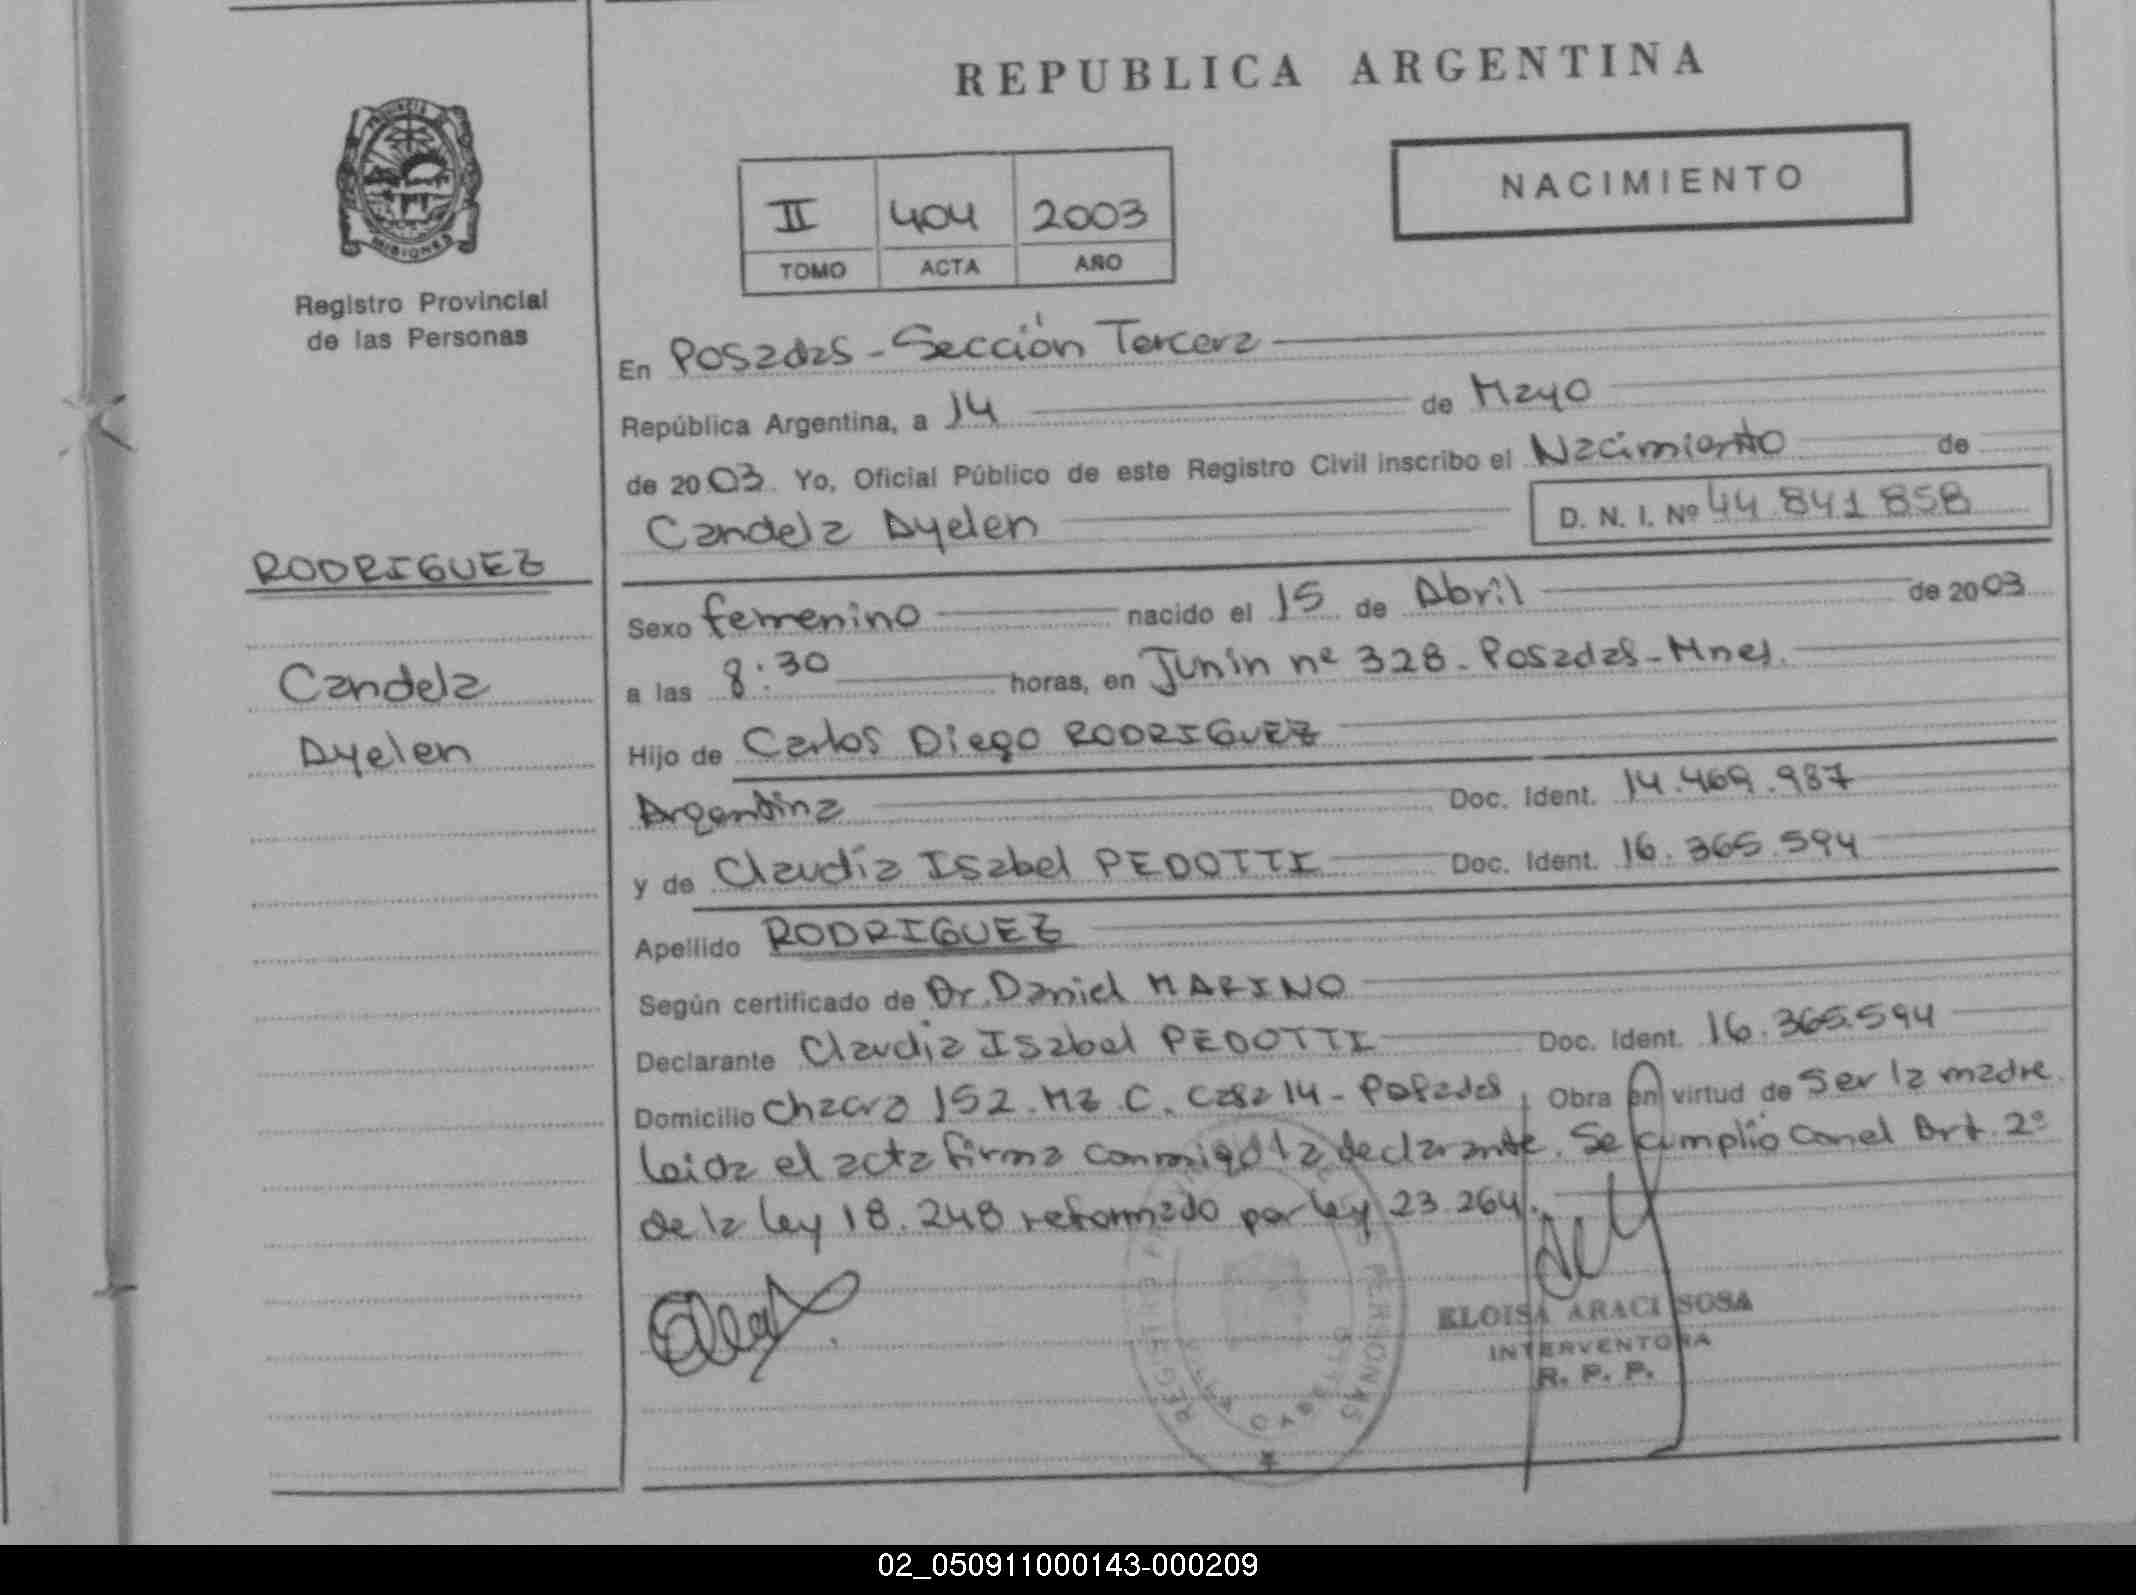 REPUBLICA ARGENTINA
PROVINCIA DE
MISIONES
Registro Provincial
de las Personas
NACIMIENTO
II 404 2003
TOMO ACTA AÑO
En Posadas - Sección Tercera
República Argentina, a 14 de Mayo
de 2003. Yo, Oficial Público de este Registro Civil inscribo el Nacimiento de
Candela Ayelen D. N. I. Nº 44.841.858
RODRIGUEZ
Candela
Ayelen
Sexo femenino nacido el 15 de Abril de 2003
a las 8:30 horas, en Junín nº 328 - Posadas - Mnes.
Hijo de Carlos Diego RODRIGUEZ
Argentina Doc. Ident. 14.469.987
y de Claudia Isabel PEDOTTI Doc. Ident. 16.365.594
Apellido RODRIGUEZ
Según certificado de Dr. Daniel MARINO
Declarante Claudia Isabel PEDOTTI Doc. Ident. 16.365.594
Domicilio Chacra 152. Mz C. Casa 14 - Posadas Obra en virtud de Ser la madre.
Leida el acta firma conmigo la declarante. Se cumplio con el Art. 2º
de la Ley 18.248 reformado por Ley 23.264.
ELOISA ARACI SOSA
INTERVENTORA
R. P. P.
02_050911000143-000209